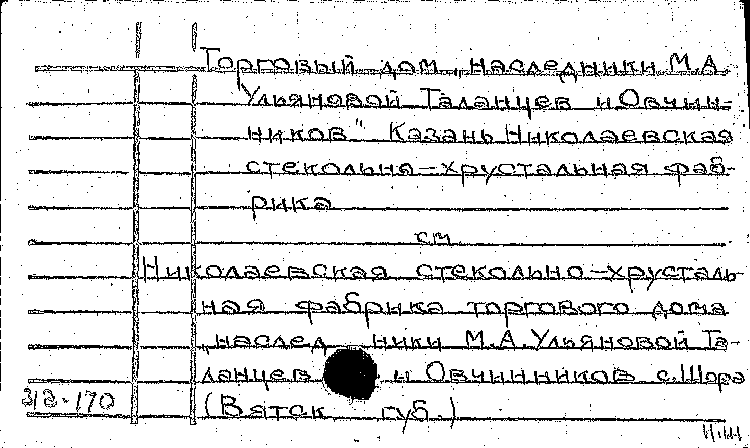 Торговый дом „наследники М.А.
Ульяновой Таланцев и Овчин-
ников" Казань Николаевская
стекольно-хрустальная фаб-
рика
см
Николаевская стекольно-хрусталь-
ная фабрика торгового дома
„наслед ники М.А. Ульяновой Та-
ланцев и Овчинников с. Шора
(Вятск губ.)